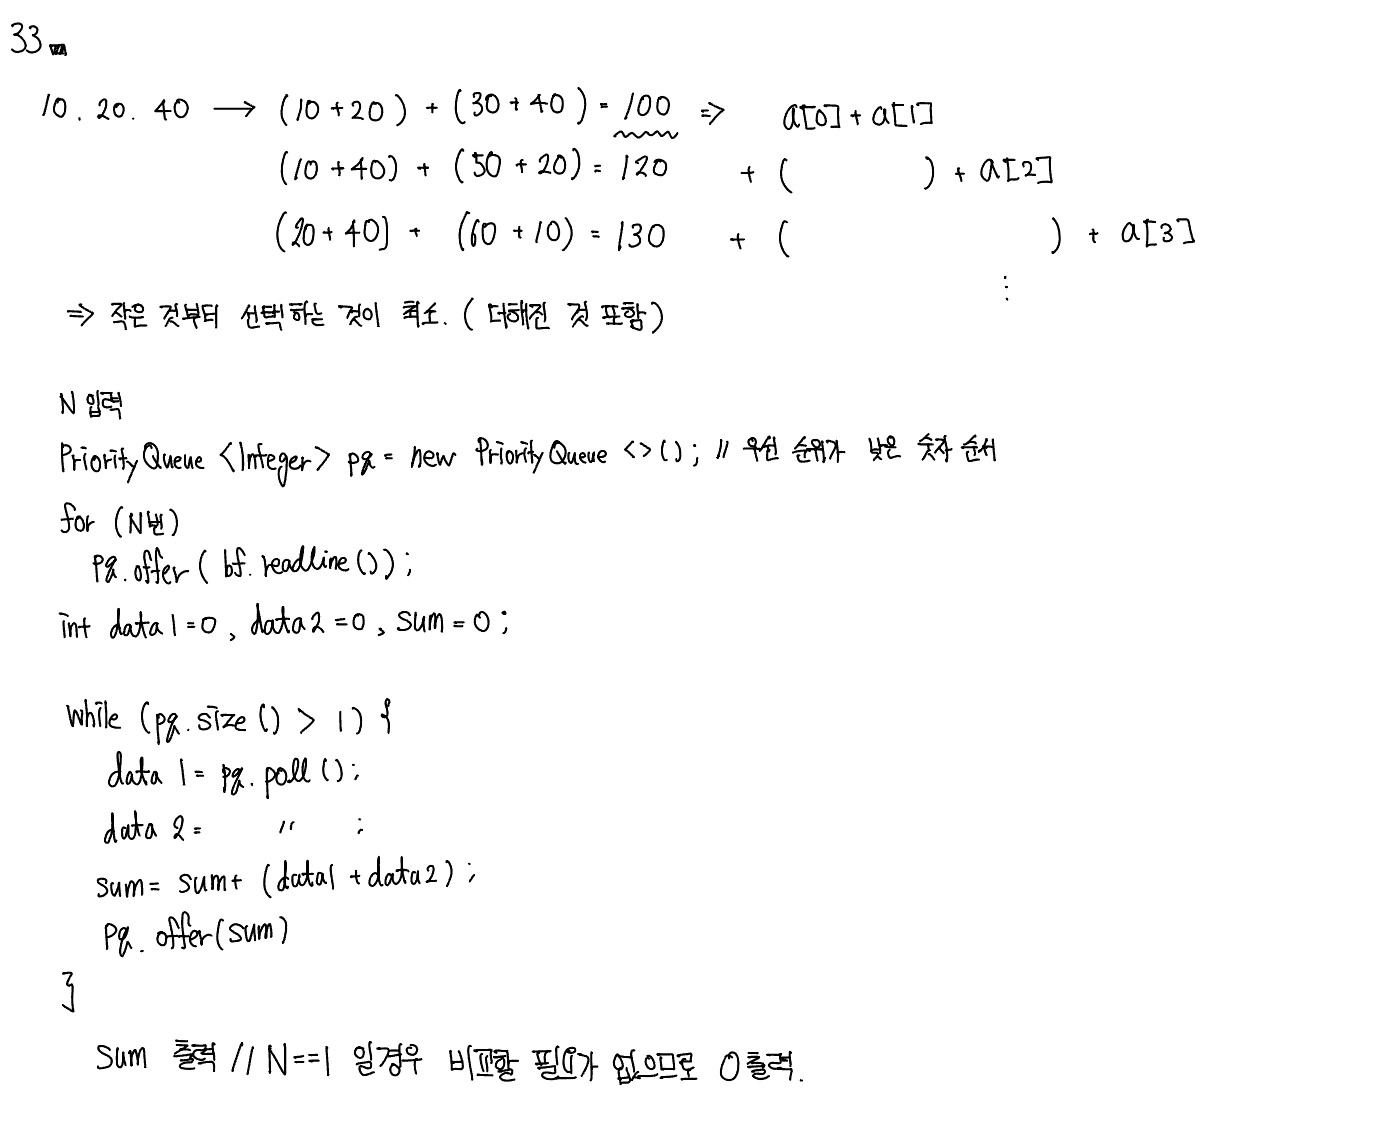 33
10. 20. 40 → (10+20) + (30+40) = 100 ⇒ a[0] + a[1]
(10+40) + (50+20) = 120 + ( ) + a[2]
(20+40] + (60+10) = 130 + ( ) + a[3]
⋮
⇒ 작은 것부터 선택하는 것이 최소. ( 더해진 것 포함 )
N 입력
PriorityQueue <Integer> pq = new PriorityQueue <>(); // 우선 순위가 낮은 숫자 순서
for (N번)
pq.offer( bf.readline());
int data1=0, data2=0, sum=0;
while (pq.size() > 1) {
data 1= pq.poll();
data 2= 〃 ;
sum= sum+ (data1 +data2);
pq. offer(sum)
}
sum 출력 // N==1 일경우 비교할 필요가 없으므로 0출력.